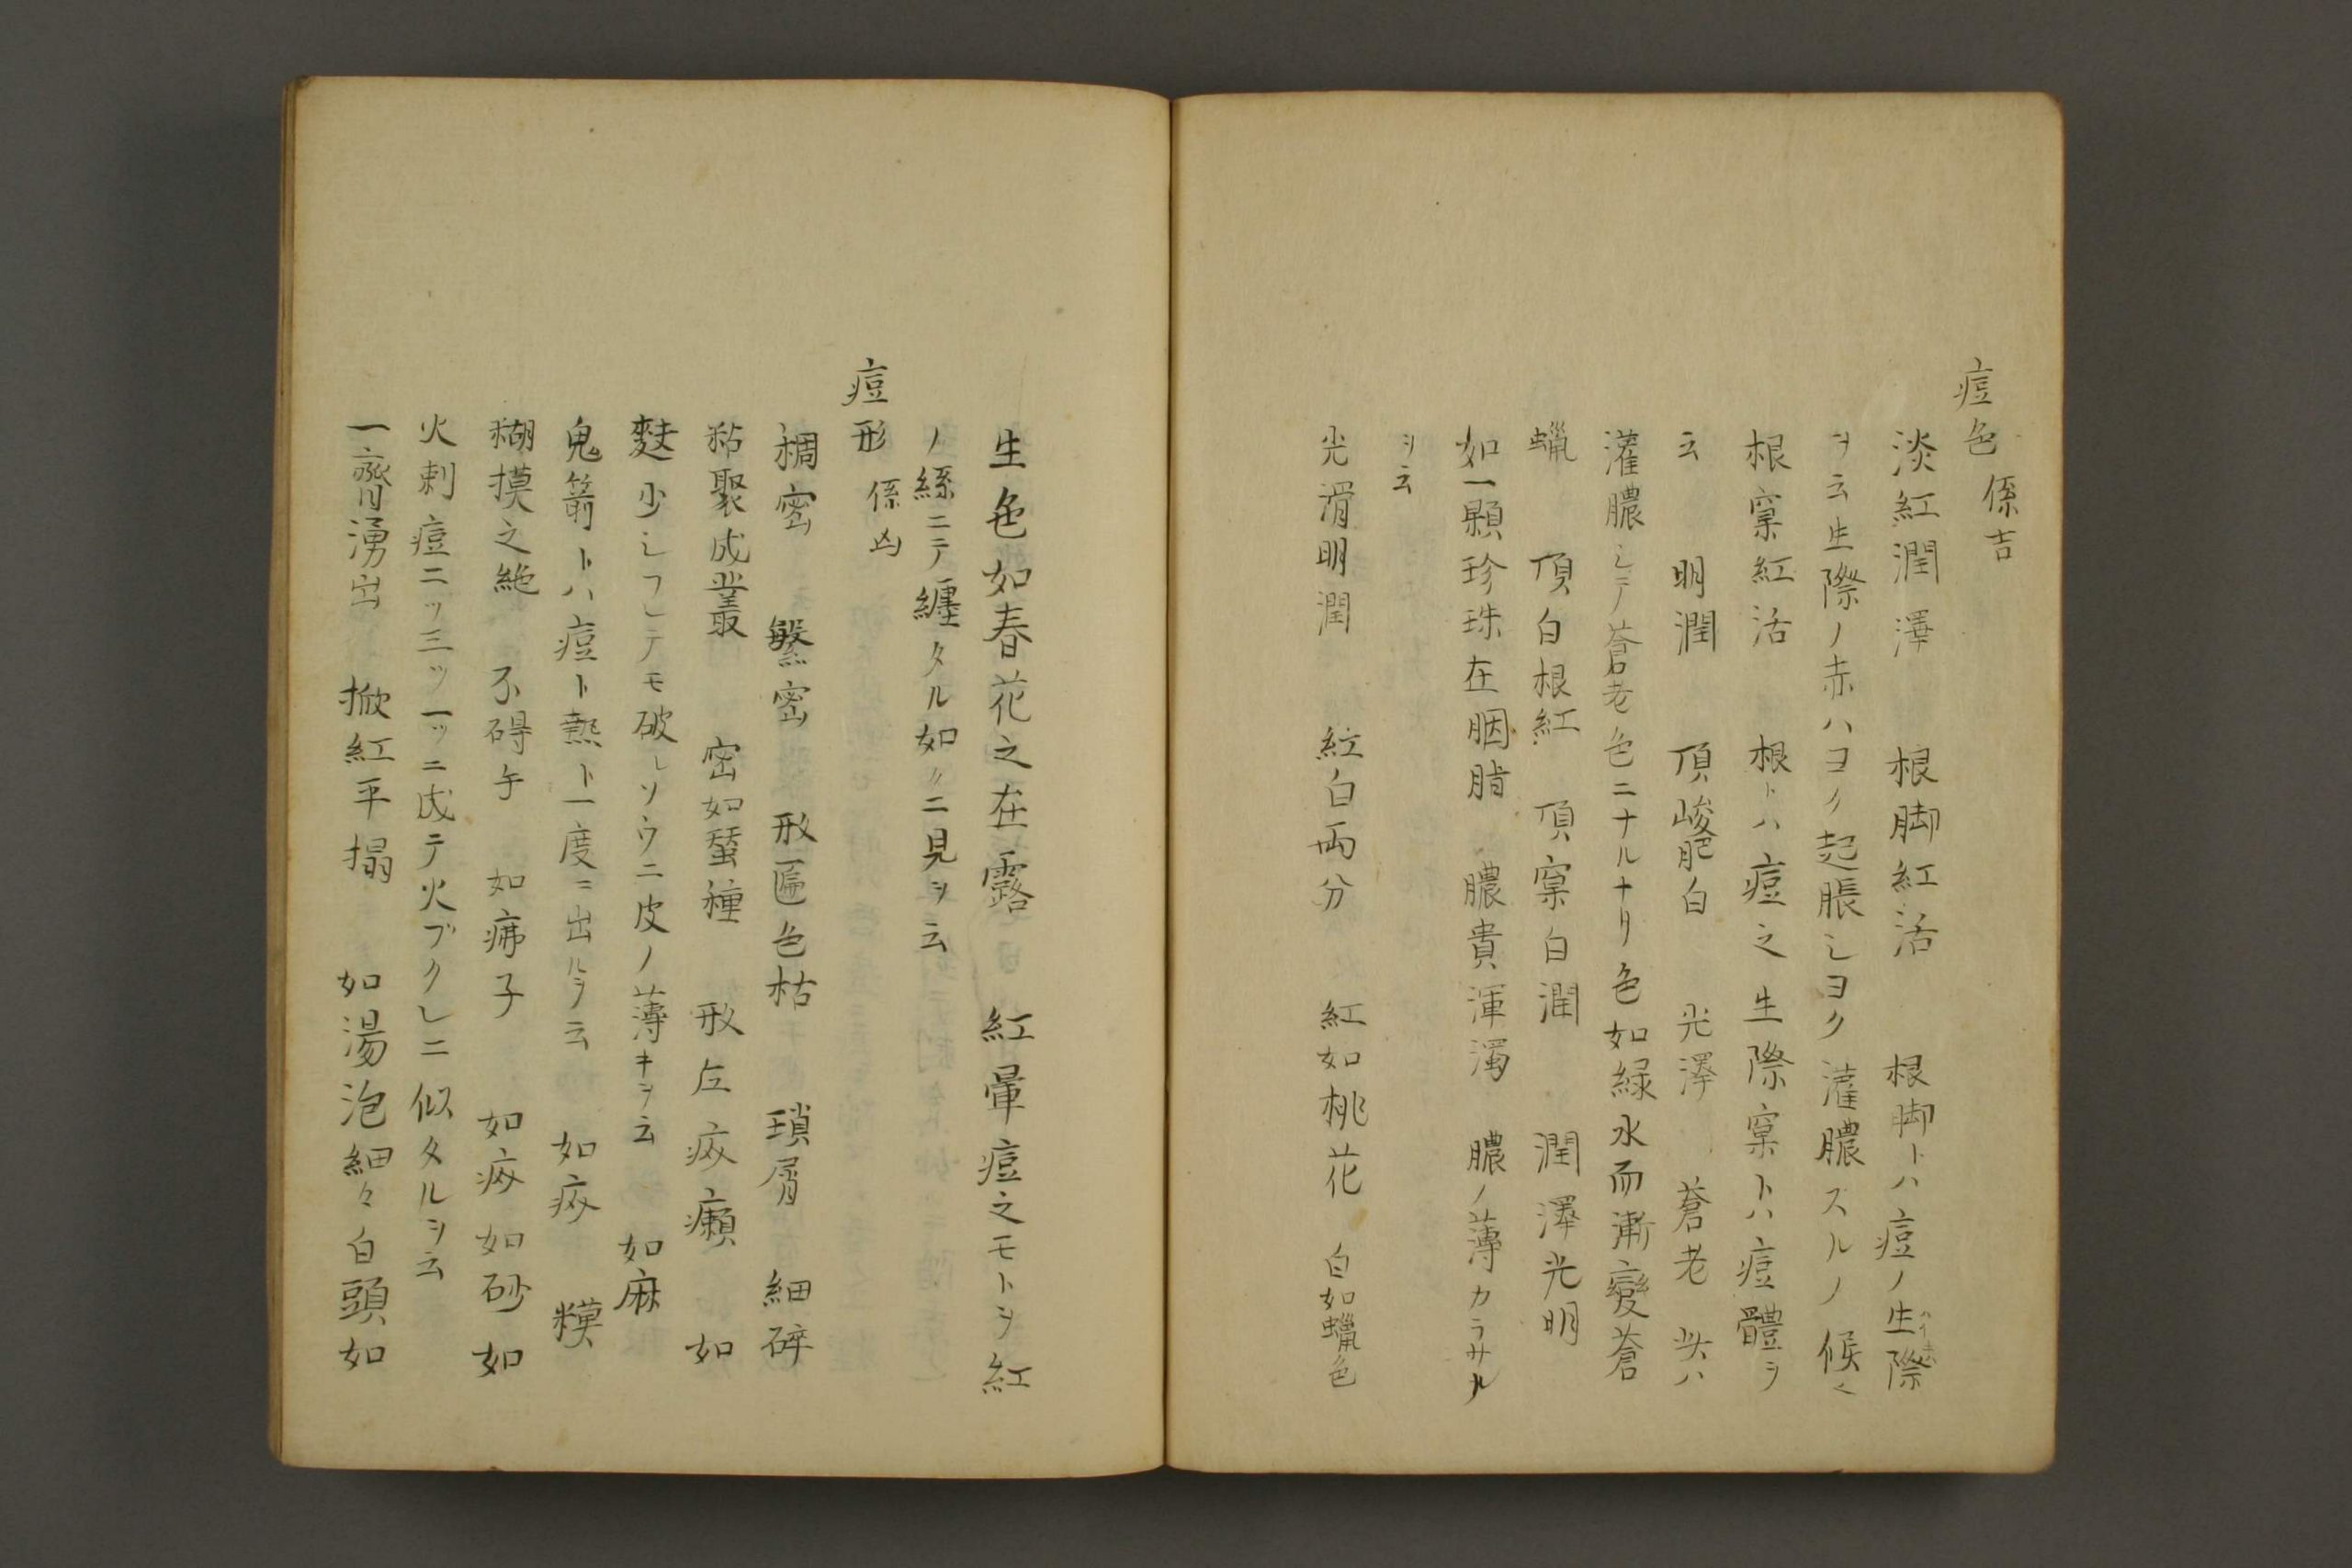 痘色 係吉
淡紅潤澤 根脚紅活 根脚トハ痘ノ生際
ヲ云生際ノ赤ハヨク起脹シヨク灌膿スルノ候
根窠紅活 根トハ痘之生際窠トハ痘體ヲ
云 明潤 頂峻肥白 光澤 蒼老 光ハ
灌膿シテ蒼老色ニナルナリ色如緑水而漸變蒼
蠟 頂白根紅 頂窠白潤 潤澤光明
如一顆珍珠在胭脂 膿貴渾濁 膿ノ薄カラサル
ヲ云
光滑明潤 紅白両分 紅如桃花 白如蠟色
生色如春花之在露 紅暈痘之モトヲ紅
ノ絲ニテ纏タル如〃ニ見ヲ云
痘形 係凶
稠密 繁密 形匾色枯 瑣屑 細碎
粘聚成叢 密如蚕種 形如 癩 如
麩少シフレテモ破レソウニ皮ノ薄キヲ云 如麻
鬼箭トハ痘ト熱ト一度ニ出ルヲ云 如 糢
糊摸之絶 不碍手 如疿子 如 如砂 如
火刺痘二ツ三ツ一ッニ成テ火ブクレニ似タルヲ云
一齊湧出 掀紅平搨 如湯泡細々白頭如